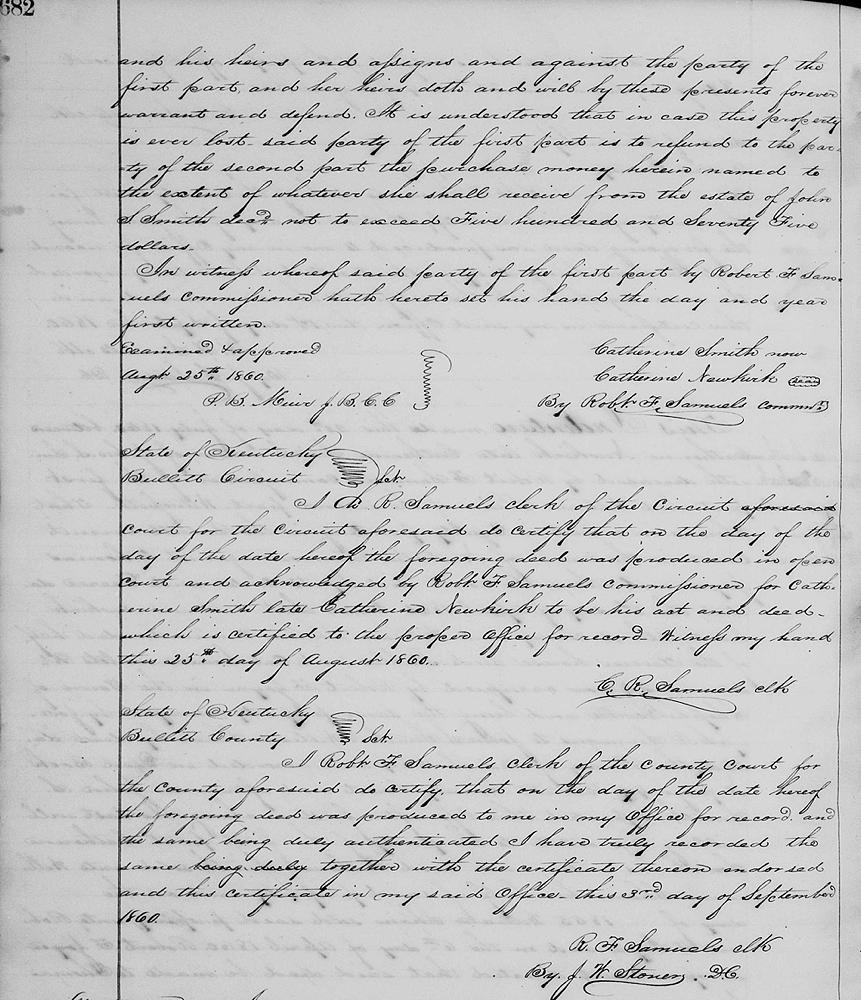 682
and his heirs and assigns and against the party of the
first part, and her heirs doth and will by these presents forever
warrant and defend. It is understood that in case this property
is ever lost said party of the first part is to refund to the par-
ty of the second part the purchase money herein named to
the extent of whatever she shall receive from the estate of John
S Smith decd. not to exceed Five hundred and Seventy Five
dollars.
In witness whereof said party of the first part by Robert F Sam-
uels Commissioner hath hereto set his hand the day and year
first written.
Examined & approved
Augt 25th 1860
P. B. Muir j. B. C. C
Catherine Smith now
Catherine Newkirk seal
By Robt. F. Samuels Commr.
State of Kentucky
Bullitt Circuit Sct.
I C R. Samuels clerk of the Circuit aforesaid
Court for the Circuit aforesaid do certify that on the day of the
day of the date hereof the foregoing deed was produced in open
Court and acknowledged by Robt. F Samuels Commissioner for Cath-
erine Smith late Catherine Newkirk to be his act and deed-
which is certified to the proper Office for record Witness my hand
this 25th day of August 1860.
C. R. Samuels clk
State of Kentucky
Bullitt County Sct.
I Robt. F Samuels clerk of the County Court for
the County aforesaid do certify, that on the day of the date hereof
the foregoing deed was produced to me in my Office for record. and
the same being duly authenticated I have truly recorded the
same being duly together with the certificate thereon endorsed
and this certificate in my said Office- this 3rd day of September
1860.
R. F Samuels clk
By. J. W. Stoner. D.C.